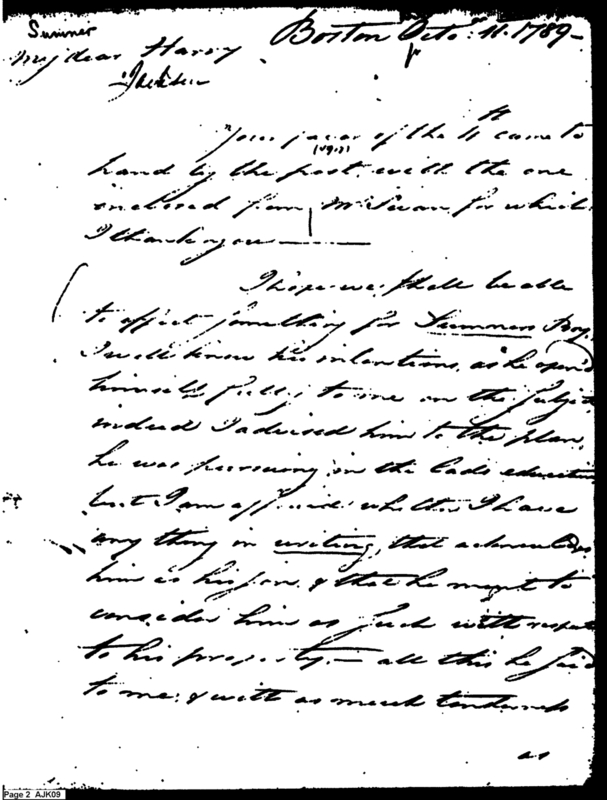 Sumner
Boston Octo. 11. 1789 -
My dear Harry
Jackson
Your favor of the 4th came to
hand by the post, with the one
inclosed from Mr Swan for which
I thank you
I hope we shall be able
to affect something for Sumners Boy,
I well know his intentions, as he open'd
himself fully to me on the subject
indeed I advised him to the plan,
he was pursuing in the lads education
but I am affraid whether I have
any thing in writing, that acknowledges
him as his son, & that he meant to
consider him as such with respect
to his property, - all this he said
to me, & with as much tenderness
as
Page 2 AJK09